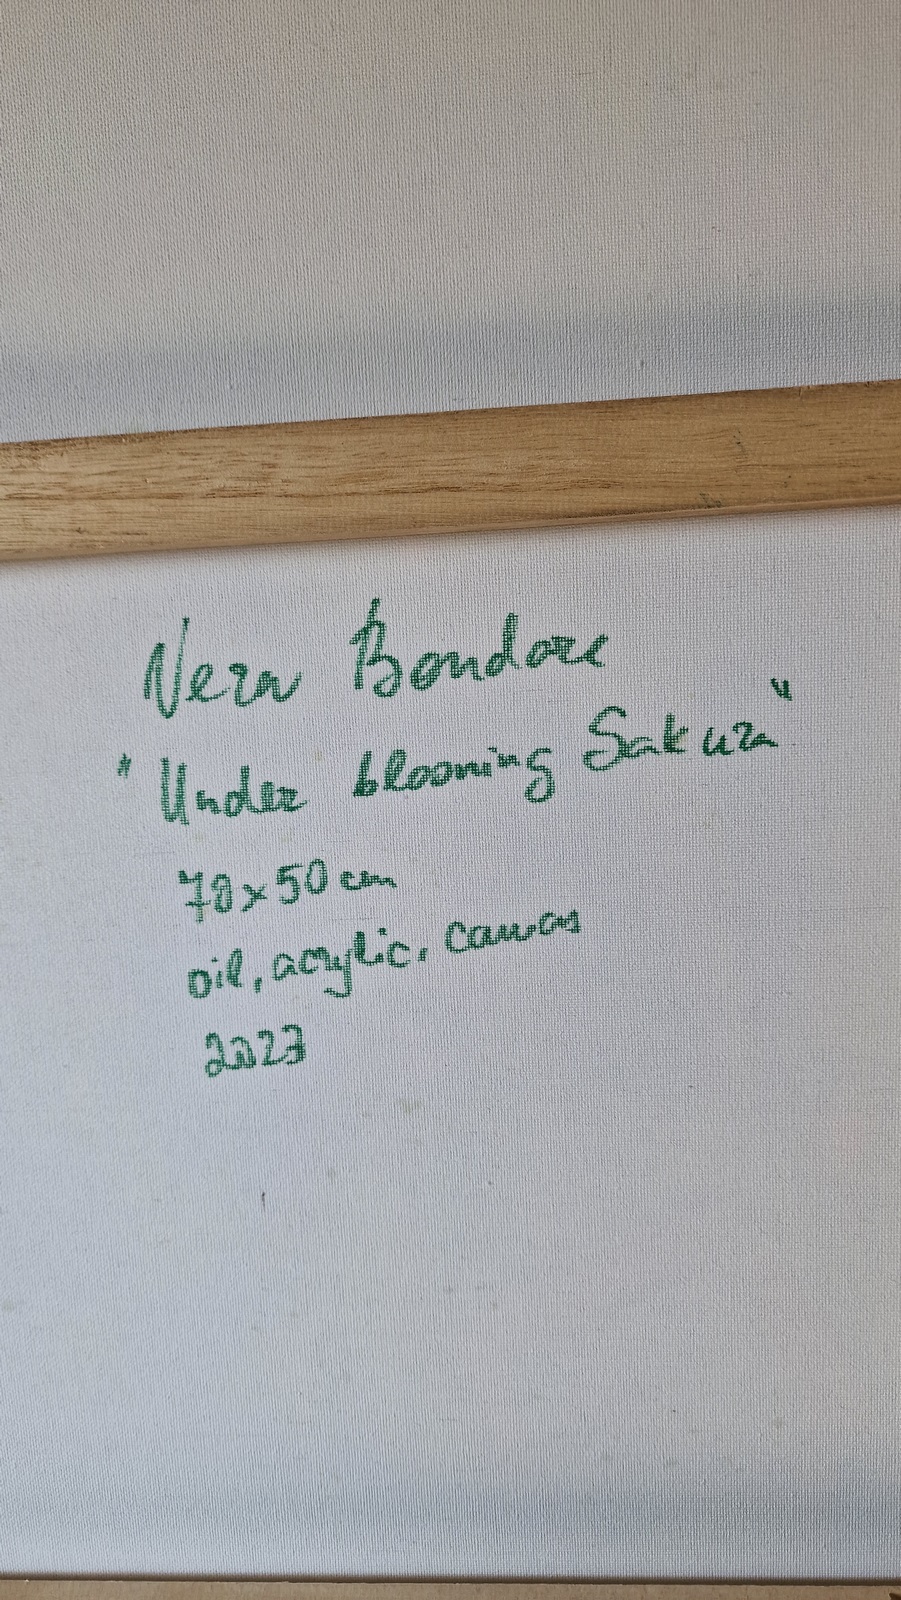 Vera Bondare
"Under blooming Sakura"
70x50 cm
oil, acrylic, canvas
2023